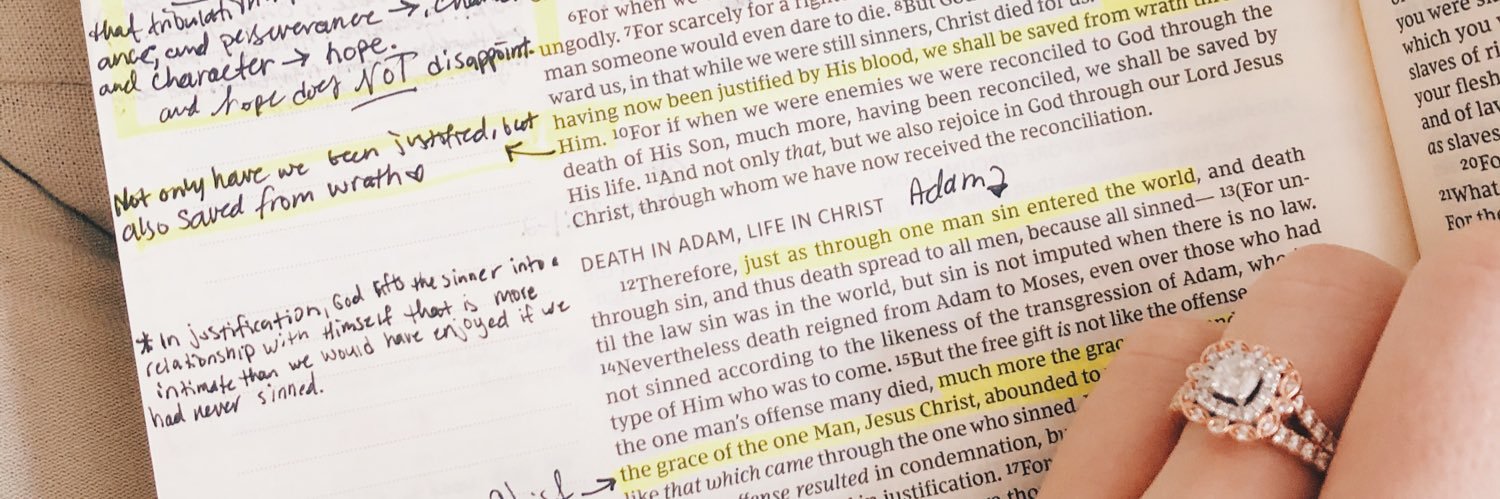 that tribulation
ance, and perseverance →, chara
and character → hope.
and hope does NOT disappoint.
Not only have we been justified, but
also saved from wrath ♡
*In justification, God lifts the sinner into a
relationship with Himself that is more
intimate than we would have enjoyed if we
had never sinned.
6For when we
ungodly. 7For scarcely for a righ
man someone would even dare to die. 8But God
ward us, in that while we were still sinners, Christ died for us.
having now been justified by His blood, we shall be saved from wrath through
Him. 10For if when we were enemies we were reconciled to God through the
death of His Son, much more, having been reconciled, we shall be saved by
His life. 11And not only that, but we also rejoice in God through our Lord Jesus
Christ, through whom we have now received the reconciliation.
Adam
DEATH IN ADAM, LIFE IN CHRIST
12Therefore, just as through one man sin entered the world, and death
through sin, and thus death spread to all men, because all sinned— 13(For un-
til the law sin was in the world, but sin is not imputed when there is no law.
14Nevertheless death reigned from Adam to Moses, even over those who had
not sinned according to the likeness of the transgression of Adam, who
type of Him who was to come. 15But the free gift is not like the offense.
the one man's offense many died, much more the grac
the grace of the one Man, Jesus Christ, abounded to
like that which came through the one who sinned.
offense resulted in condemnation, bu
justification. 17For
you were s
which you
slaves of ri
your flesh
and of law
as slaves
20Fo
21What
For the